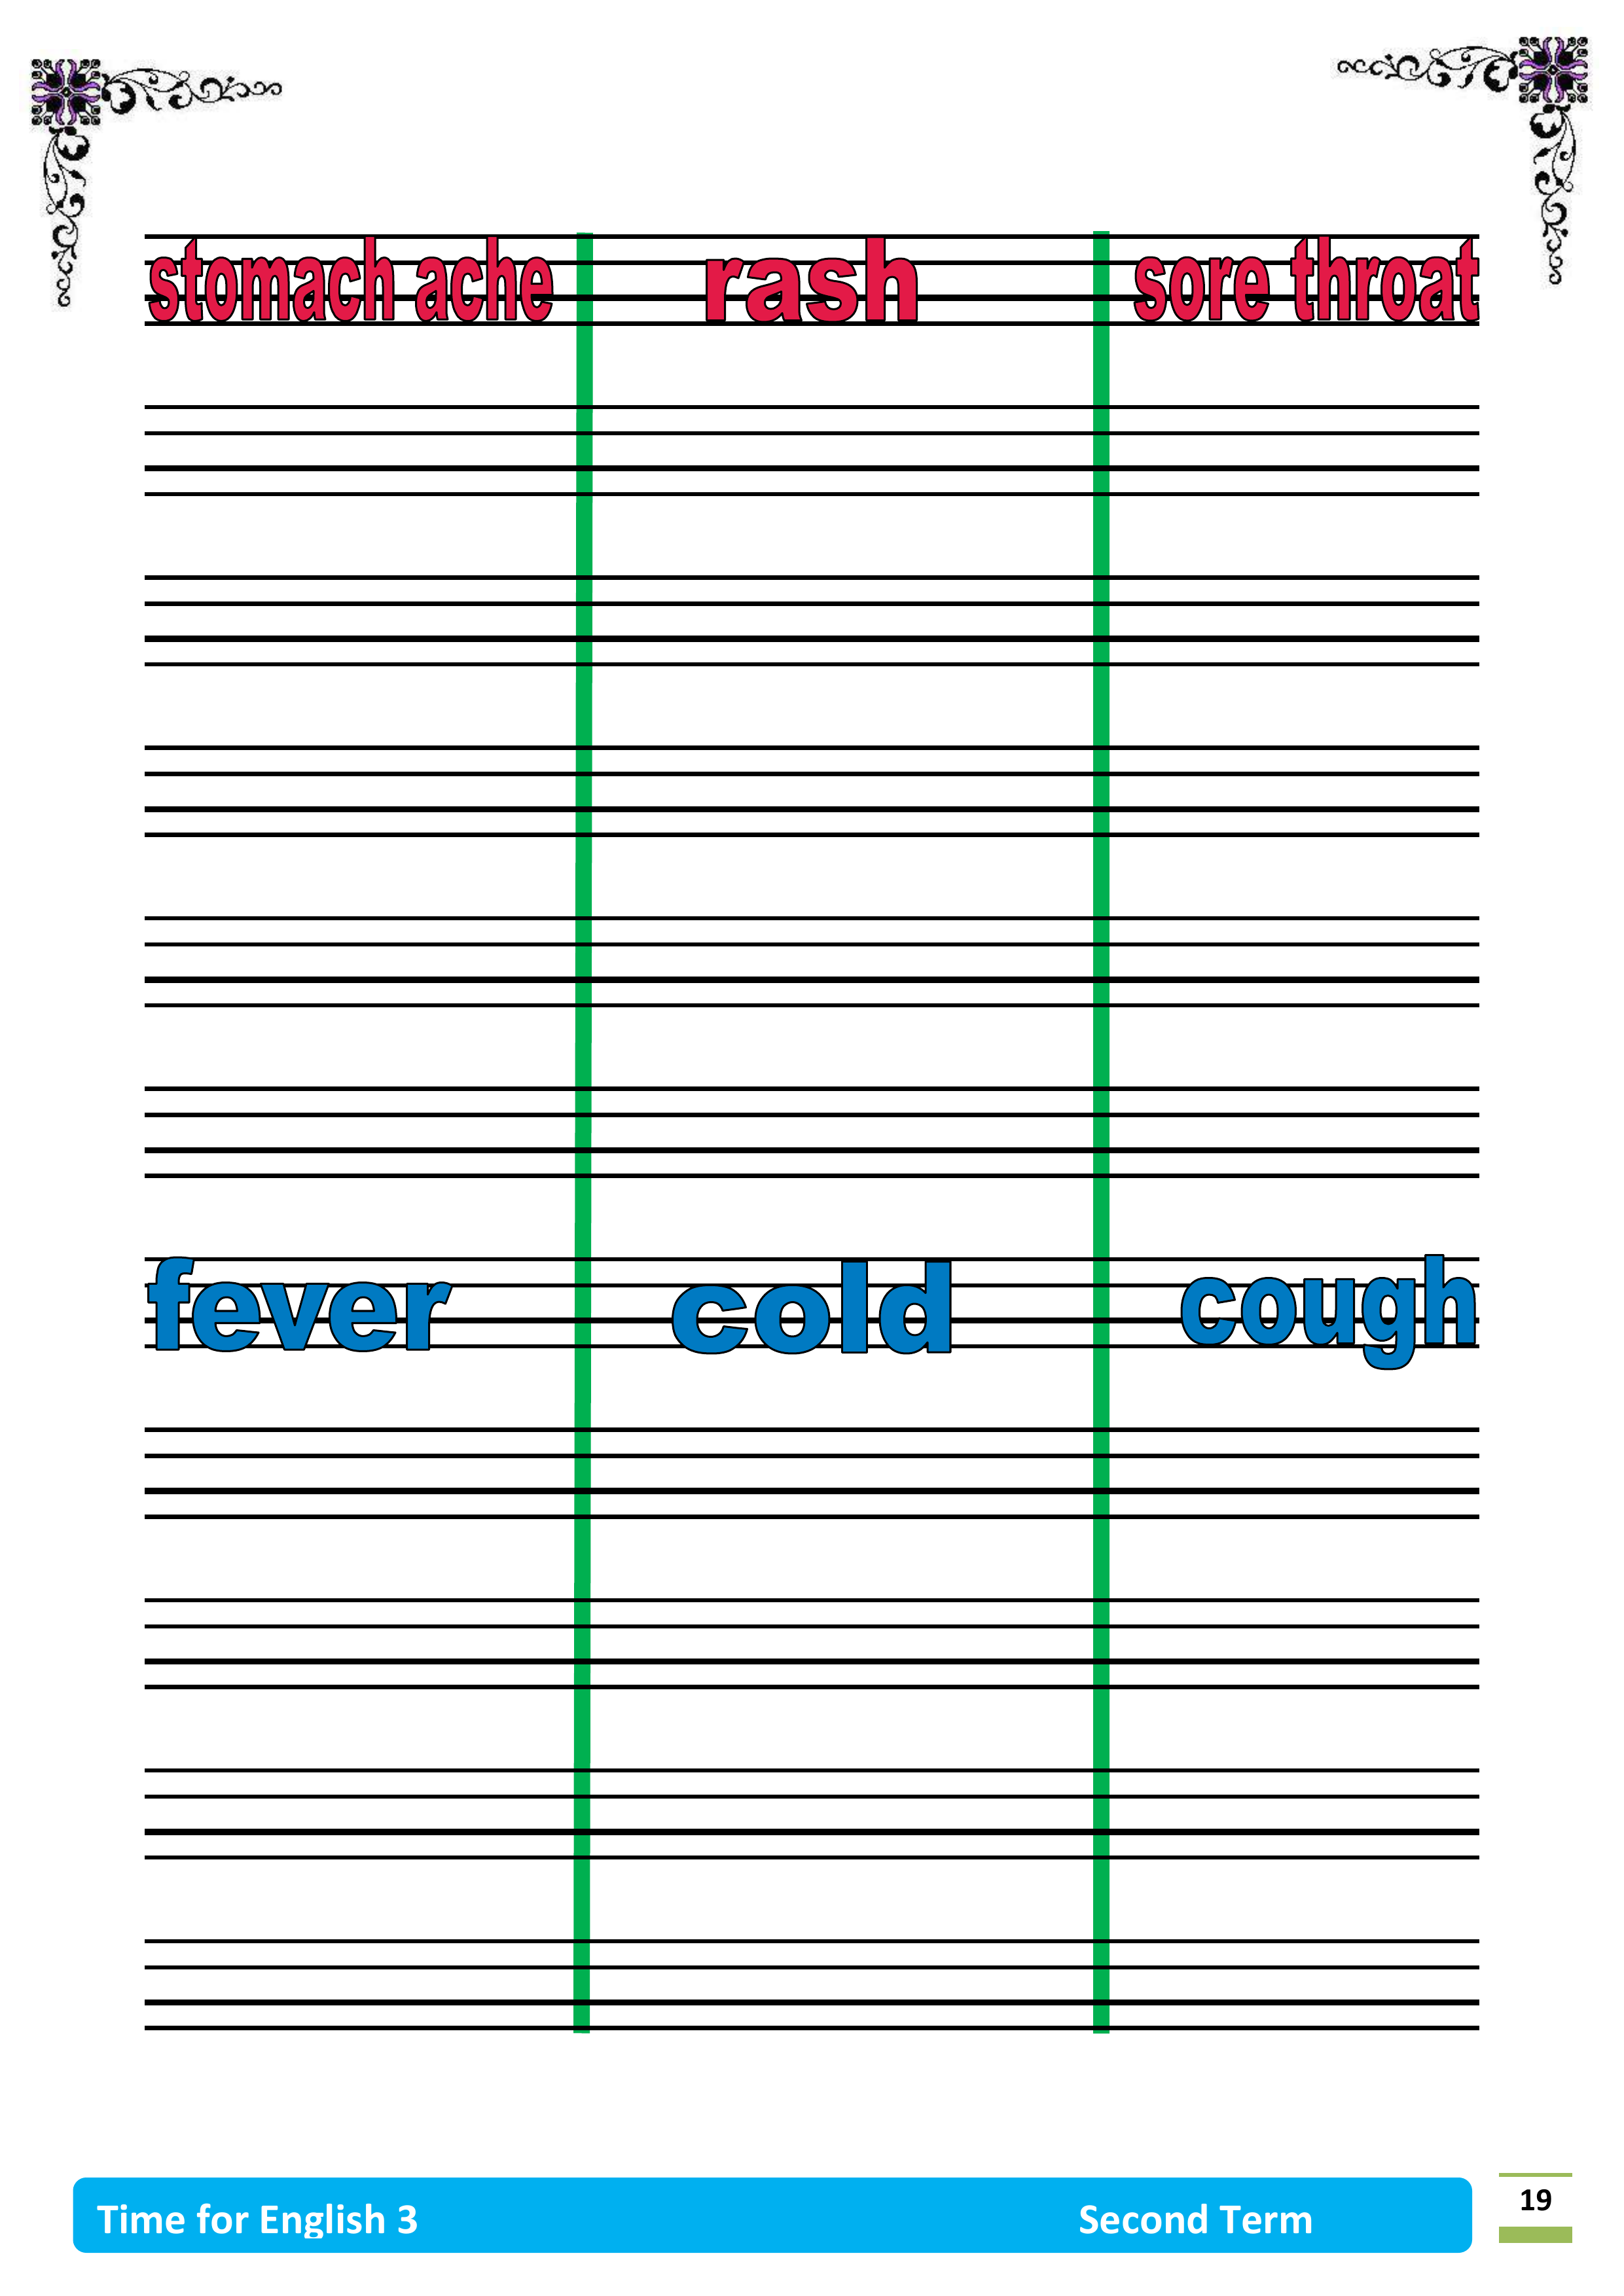 stomach ache rash sore throat
fever cold cough
Time for English 3 Second Term
19